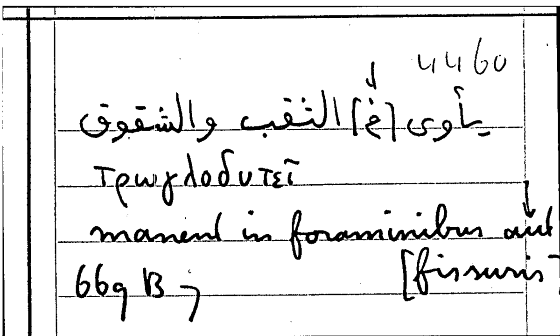 4460
يأوى [في] الثقب والشقوق
τρωγλοδυτεῖ
manent in foraminibus aut
669 B 7 [fissuris]